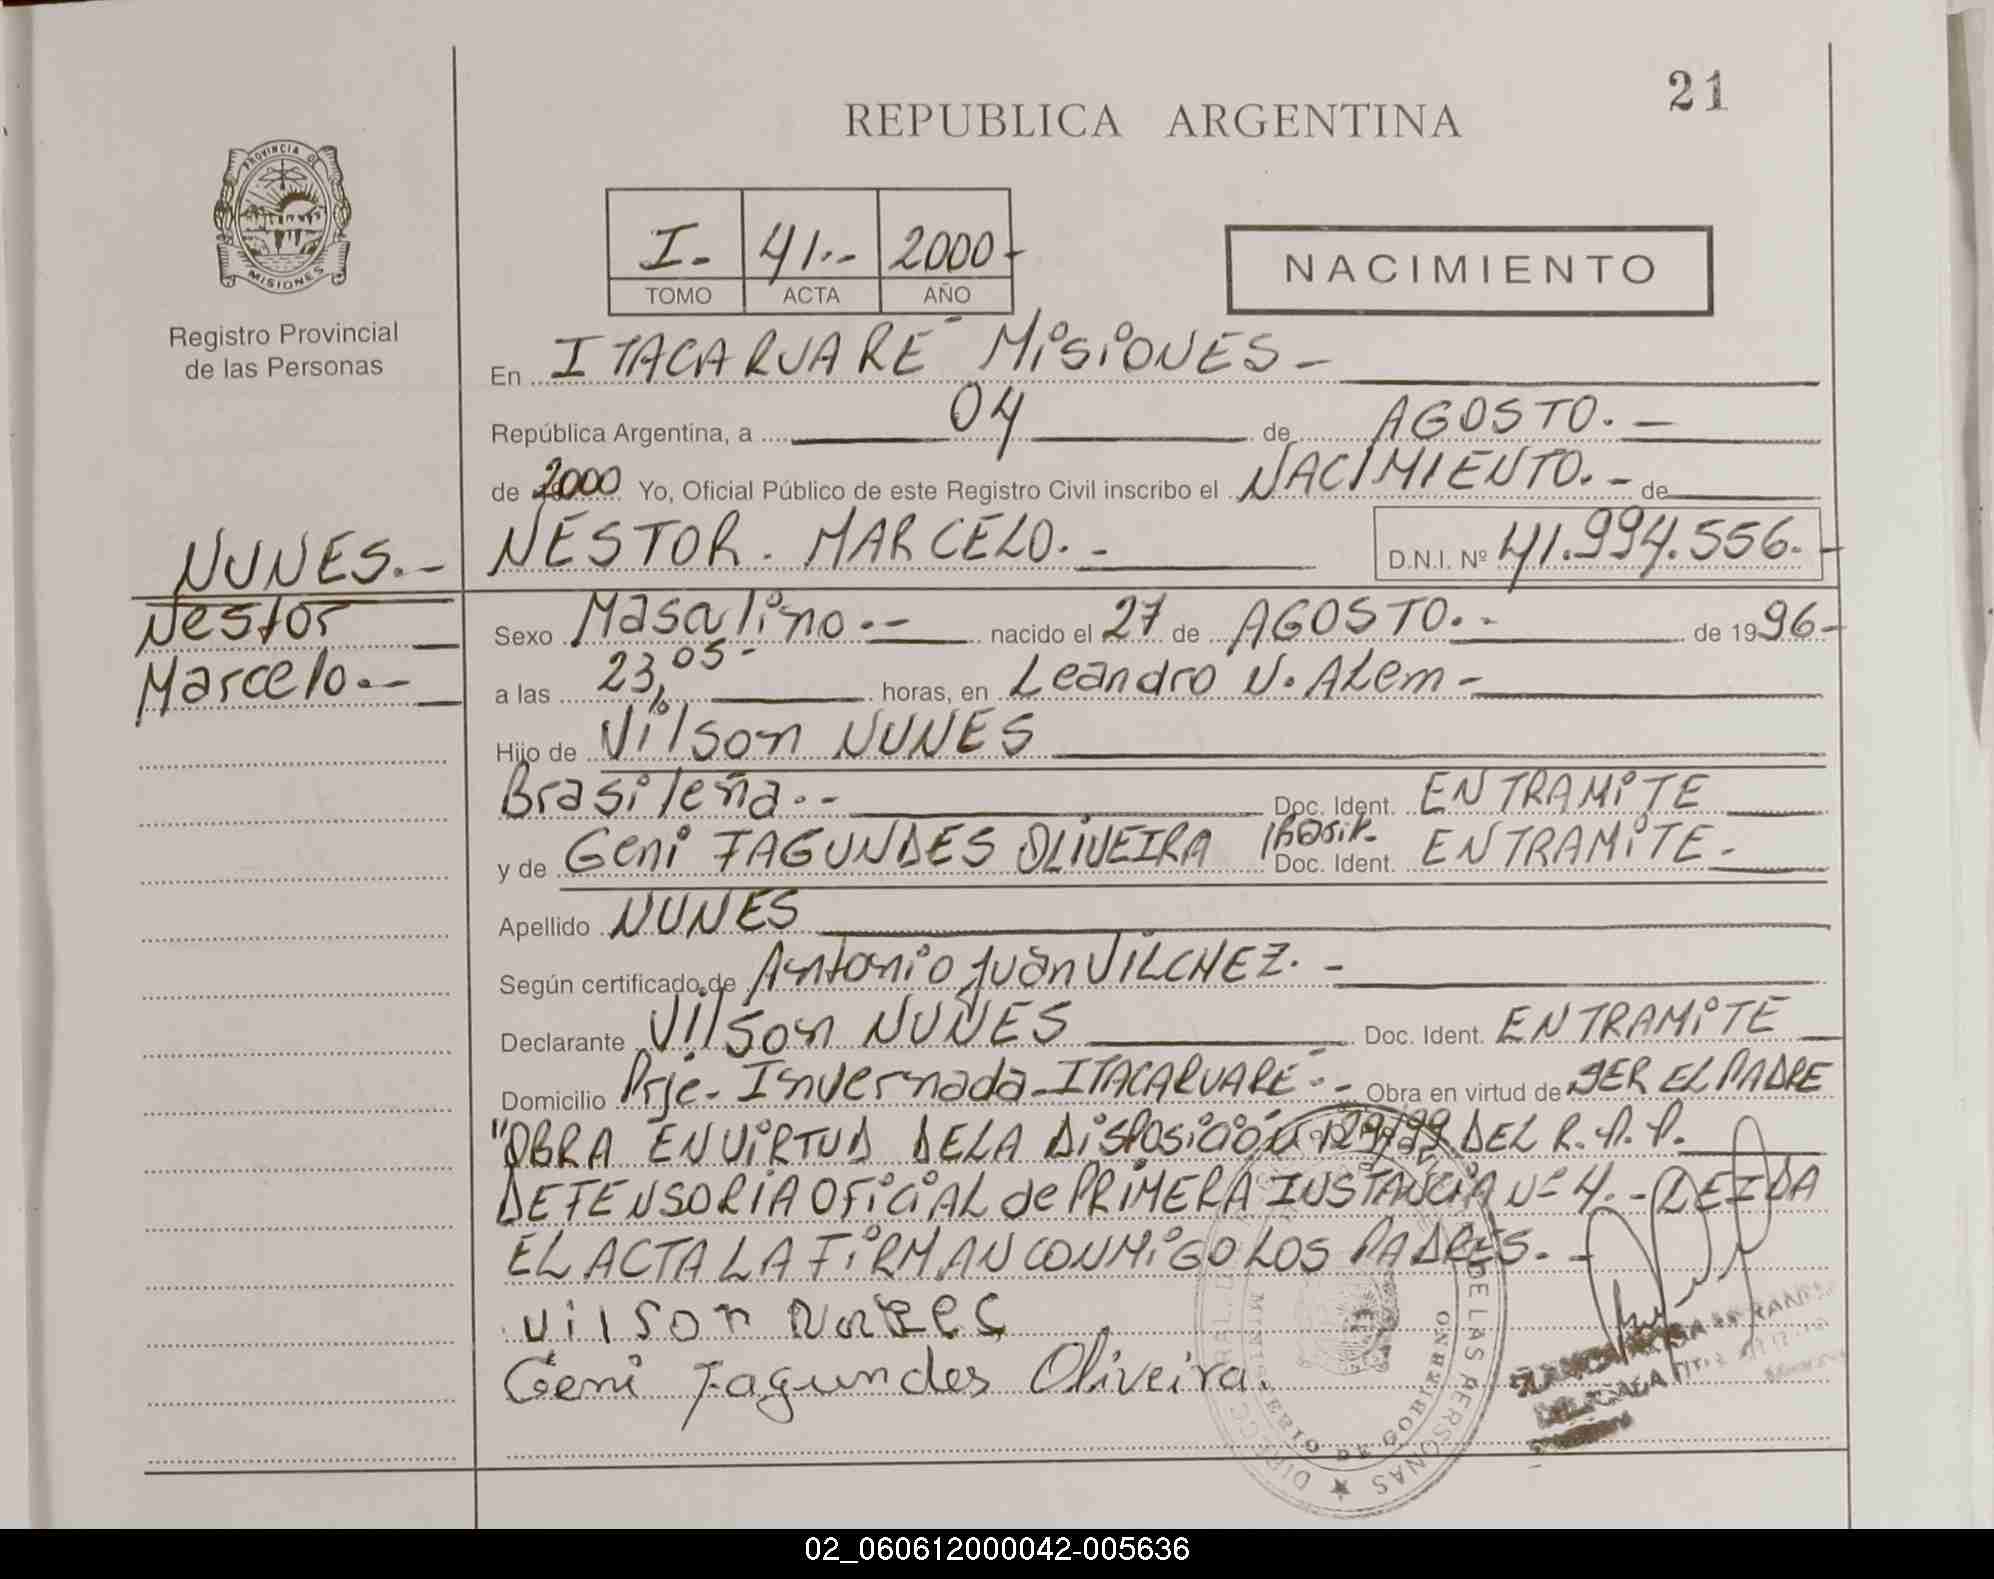 21
REPUBLICA ARGENTINA
PROVINCIA DE
MISIONES
Registro Provincial
de las Personas
I.- 41.- 2000-
TOMO ACTA AÑO
NACIMIENTO
En ITACARUARE MISIONES -
República Argentina, a 04 de AGOSTO.-
de 2000 Yo, Oficial Público de este Registro Civil inscribo el NACIMIENTO.- de
NUNES.-
Nestor
Marcelo.-
NESTOR. MARCELO.- D.N.I. Nº 41.994.556.-
Sexo Masculino.- nacido el 27 de AGOSTO.- de 1996-
a las 23,05- horas, en Leandro N. ALem-
Hijo de Vilson NUNES
Brasileña.- Doc. Ident. EN TRAMITE
y de Geni FAGUNDES OLIVEIRA Doc. Ident. EN TRAMITE-
Apellido NUNES
Según certificado de Antonio Juan VILCHEZ.-
Declarante Vilson NUNES Doc. Ident. EN TRAMITE
Domicilio Prje- Invernada-ITACARUARE.- Obra en virtud de SER EL PADRE
"OBRA EN VIRTUD DE LA DISPOSICIÓN 29/99 DEL R.P.P.
DEFENSORIA OFICIAL de PRIMERA INSTANCIA Nº 4.- LEIDA
EL ACTA LA FIRMAN CONMIGO LOS PADRES.-
Vilson
Geni Fagundes Oliveira.
DE LAS PERSONAS
MINISTERIO DE GOBIERNO
02_060612000042-005636